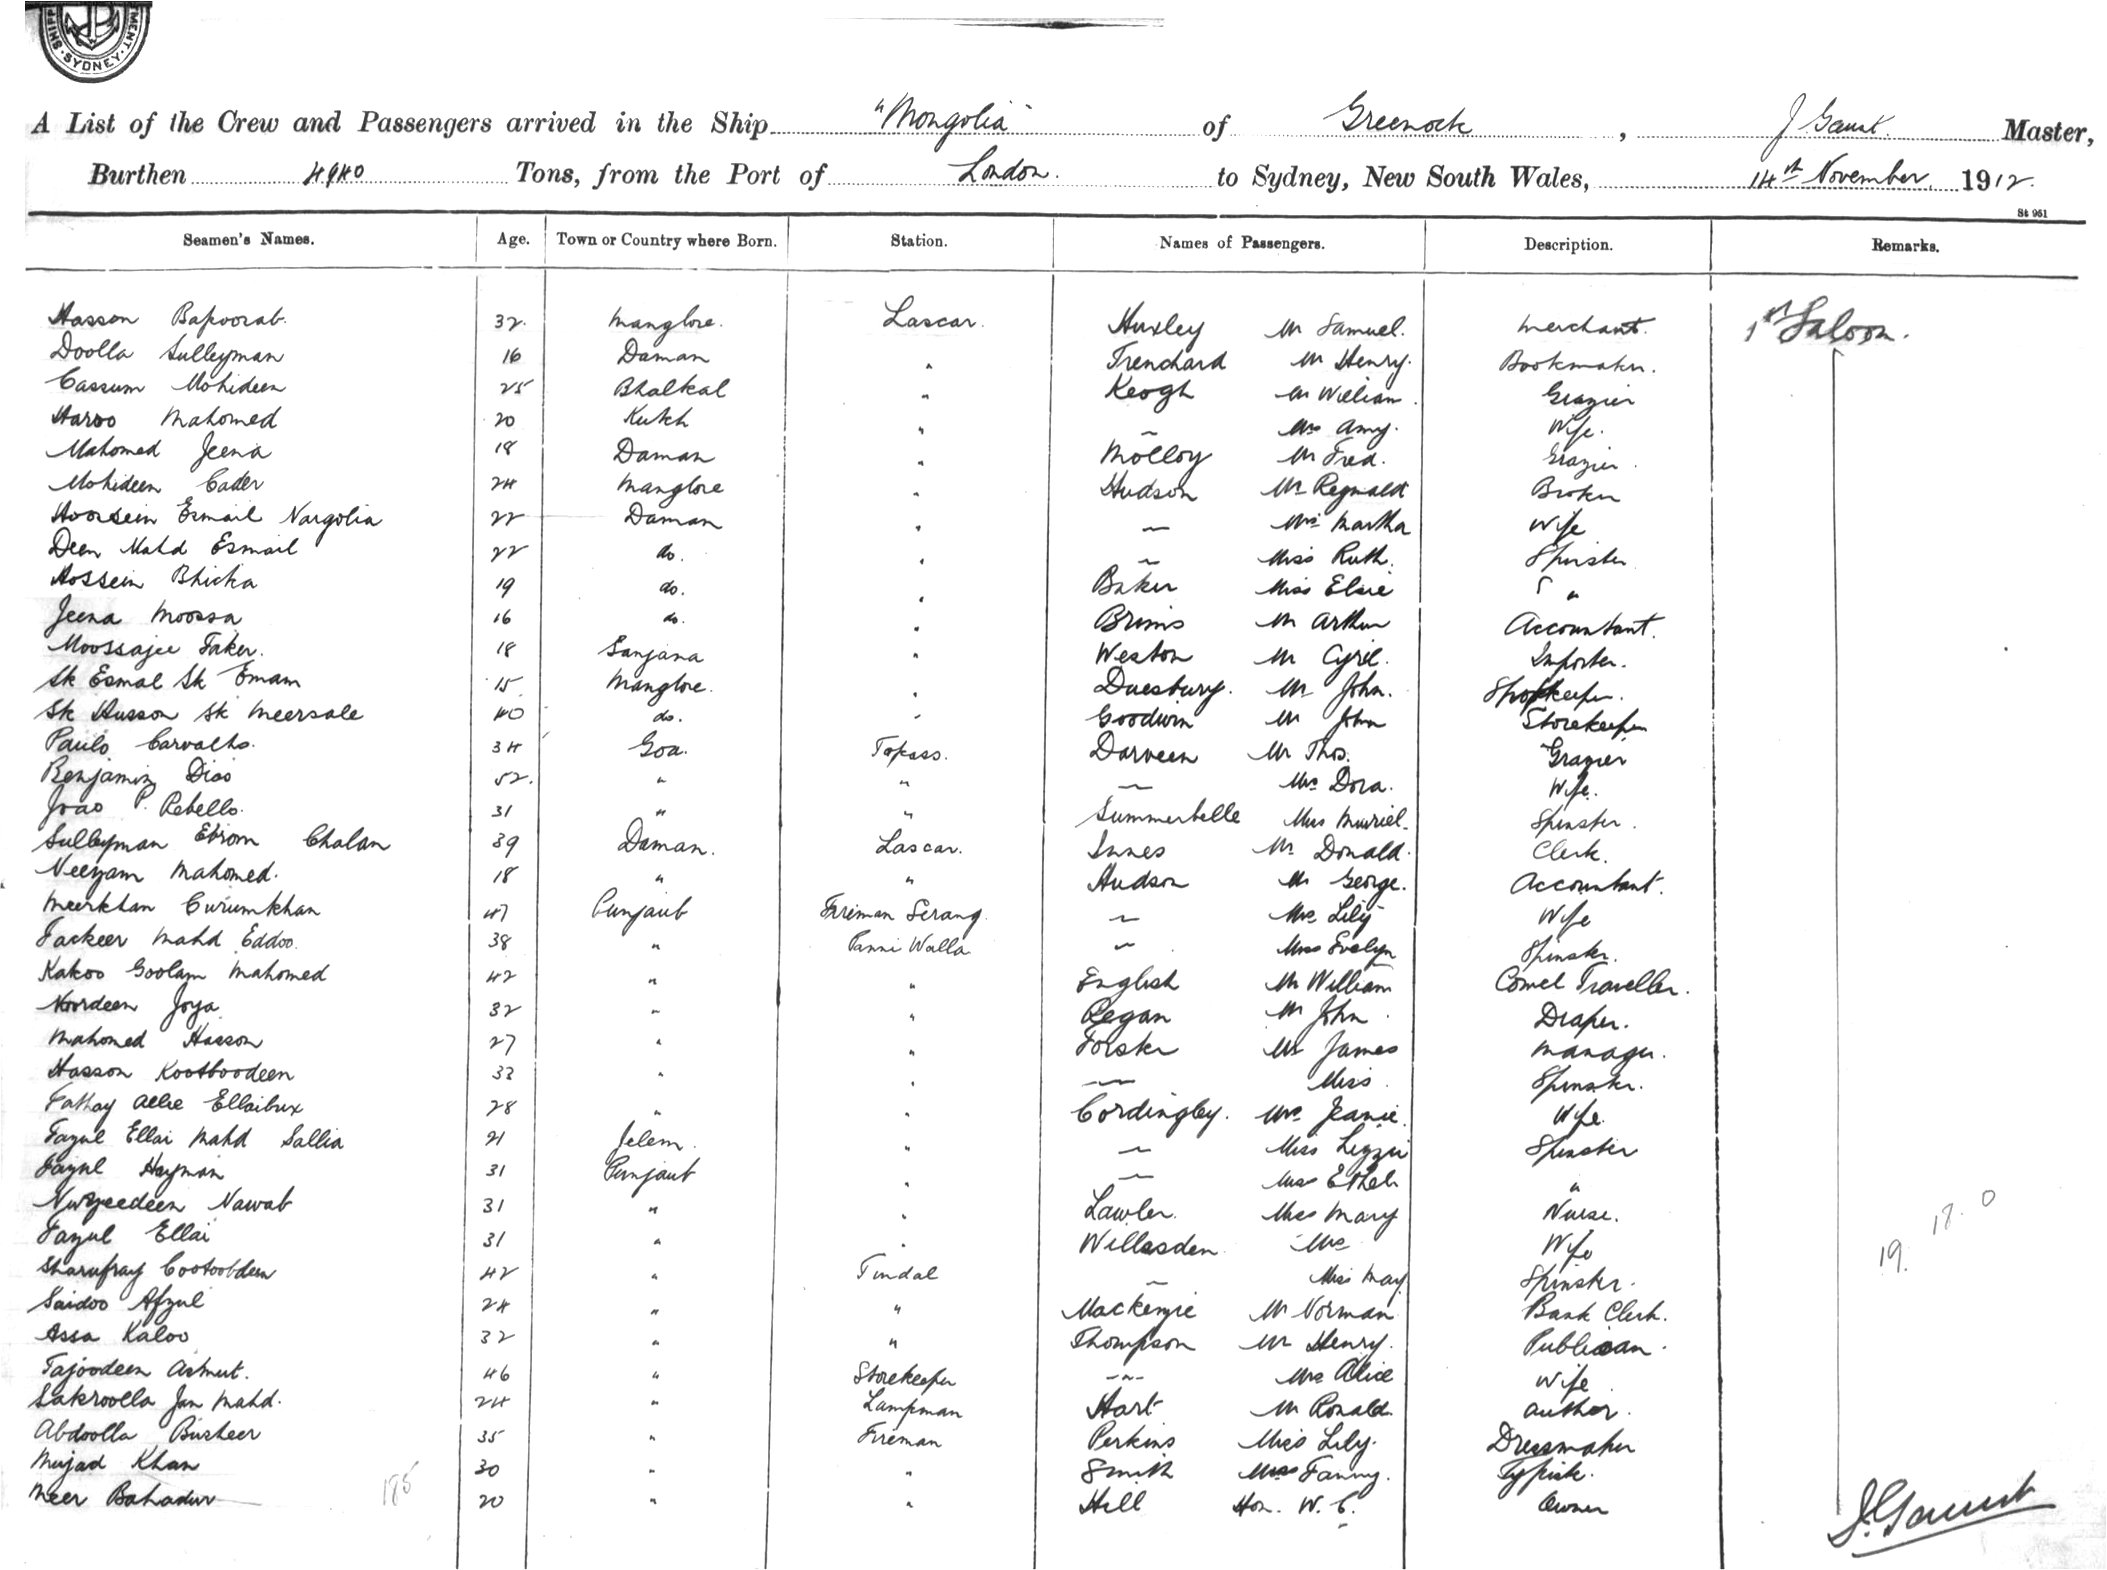 SHIPP MENT. SYDNEY.
A List of the Crew and Passengers arrived in the Ship "Mongolia" of Greenock, J Gaunt. Master,
Burthen 4940 Tons, from the Port of London. to Sydney, New South Wales, 14th November 1912.
St 961
Seamen's Names. Age. Town or Country where Born. Station. Names of Passengers. Description. Remarks.
Hasson Bapoorab. 32. Manglore. Lascar. Huxley Mr Samuel. Merchant. 1st Saloon.
Doolla Sulleyman 16 Daman " Trenchard Mr Henry. Bookmaker.
Cassum Mohideen 25 Bhalkal " Keogh Mr William. Grazier
Haroo Mahomed 20 Kutch " — Mrs Amy. Wife.
Mahomed Jeena 18 Daman " Molloy Mr Fred. Grazier.
Mohideen Cader 24 Manglore " Hudson Mr Reginald Broker
Hoossein Esmail Nargolia 22 Daman " — Mrs Martha Wife
Deen Mahd Esmail 22 do. " — Miss Ruth. Spinster
Hossein Bhicka 19 do. Baker Miss Elsie "
Jeena Moossa 16 do. " Brims Mr Arthur Accountant.
Moossajee Faker. 18 Sanjana " Weston Mr Cyril. Importer.
Sk Esmal Sk Emam 15 Manglore. " Duesbury. Mr John. Shopkeeper.
Sk Husson Sk Meersale 40 do. " Goodwin Mr John Storekeeper
Paulo Carvalho. 34 Goa. Topass. Darveen Mr Thos. Grazier
Benjamin Dias 52. " " — Mrs Dora. Wife.
Joao P. Rebello. 31 " " Summerbelle Miss Muriel. Spinster.
Sulleyman Ebrom Chalan 39 Daman. Lascar. Innes Mr Donald. Clerk.
Neeyam Mahomed. 18 " " Hudson Mr George. Accountant.
Meerkhan Curumkhan 47 Punjaub Fireman Serang. — Mrs Lily Wife
Fackeer Mahd Eddoo. 38 " Panni Walla — Miss Evelyn Spinster.
Kakoo Goolam Mahomed 42 " " English Mr William Comcl Traveller.
Noordeen Joya 32 " " Regan Mr John. Draper.
Mahomed Hasson 27 " " Forster Mr James Manager.
Hasson Kootboodeen 32 " " — Miss Spinster.
Fathay Allie Ellaibux 28 " " Cordingley. Mrs Jeanie. Wife.
Fazul Ellai Mahd Sallia 21 Jelem. " — Miss Lizzie Spinster
Fazul Hayman 31 Punjaub " — Miss Ethel "
Nurzeedeen Nawab 31 " " Lawler. Miss Mary Nurse.
Fazul Ellai 31 " " Willesden Mrs Wife
Sharufray Cootoobdeen 42 " Tindal — Miss May Spinster.
Saidoo Afzul 24 " " Mackenzie Mr Norman Bank Clerk.
Assa Kaloo 32 " " Thompson Mr Henry. Publican.
Tajoodeen Asmut. 46 " Storekeeper — Mrs Alice Wife
Sakroolla Jan Mahd. 24 " Lampman Hart Mr Ronald. Author.
Abdoolla Busheer 35 " Fireman Perkins Miss Lily. Dressmaker
Mujad Khan 30 " " Smith Miss Fanny. Typist.
Meer Bahadur 20 " " Hill Hon. W. C. Owner
185
18. 0
19.
J. Gaunt